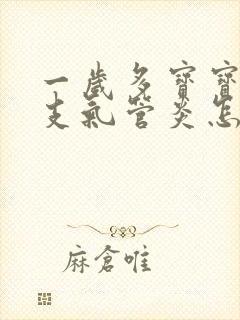 一歲多寶寶
支氣管炎怎
麻倉唯